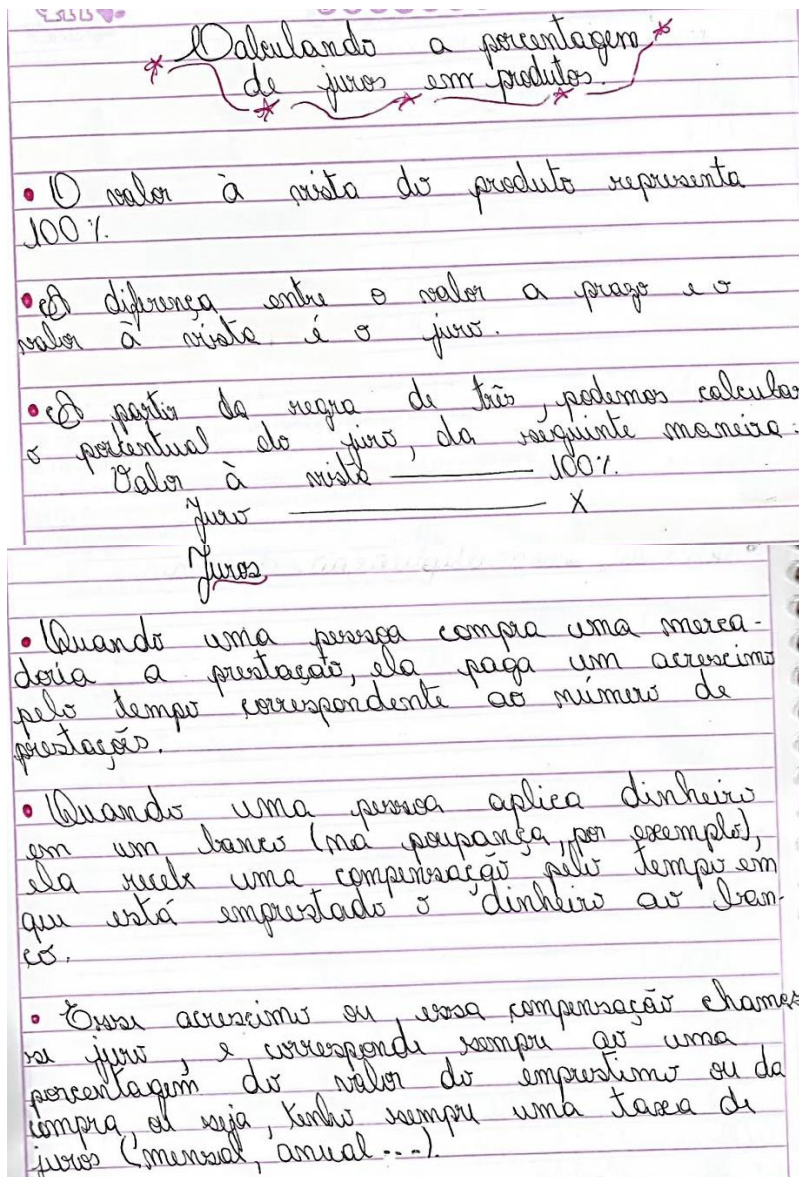 Calculando a porcentagem
de juros em produtos.
• O valor à vista do produto representa
100%.
• A diferença entre o valor a prazo e o
valor à vista é o juro.
• A partir da regra de três, podemos calcular
o portentual do juro, da seguinte maneira:
Valor à vista ——— 100%.
Juro ——— X
Juros
• Quando uma pessoa compra uma merca-
doria a prestação, ela paga um acrescimo
pelo tempo correspondente ao número de
prestações.
• Quando uma pessoa aplica dinheiro
em um banco (na poupança, por exemplo),
ela recebe uma compensação pelo tempo em
que está emprestado o dinheiro ao ban-
co.
• Esse acrescimo ou, essa compensação chames
se juro, e corresponde sempre ao uma
porcentagem do valor do emprestimo ou da
compra, ou seja, tenho sempre uma taxa de
juros (mensal, anual...).